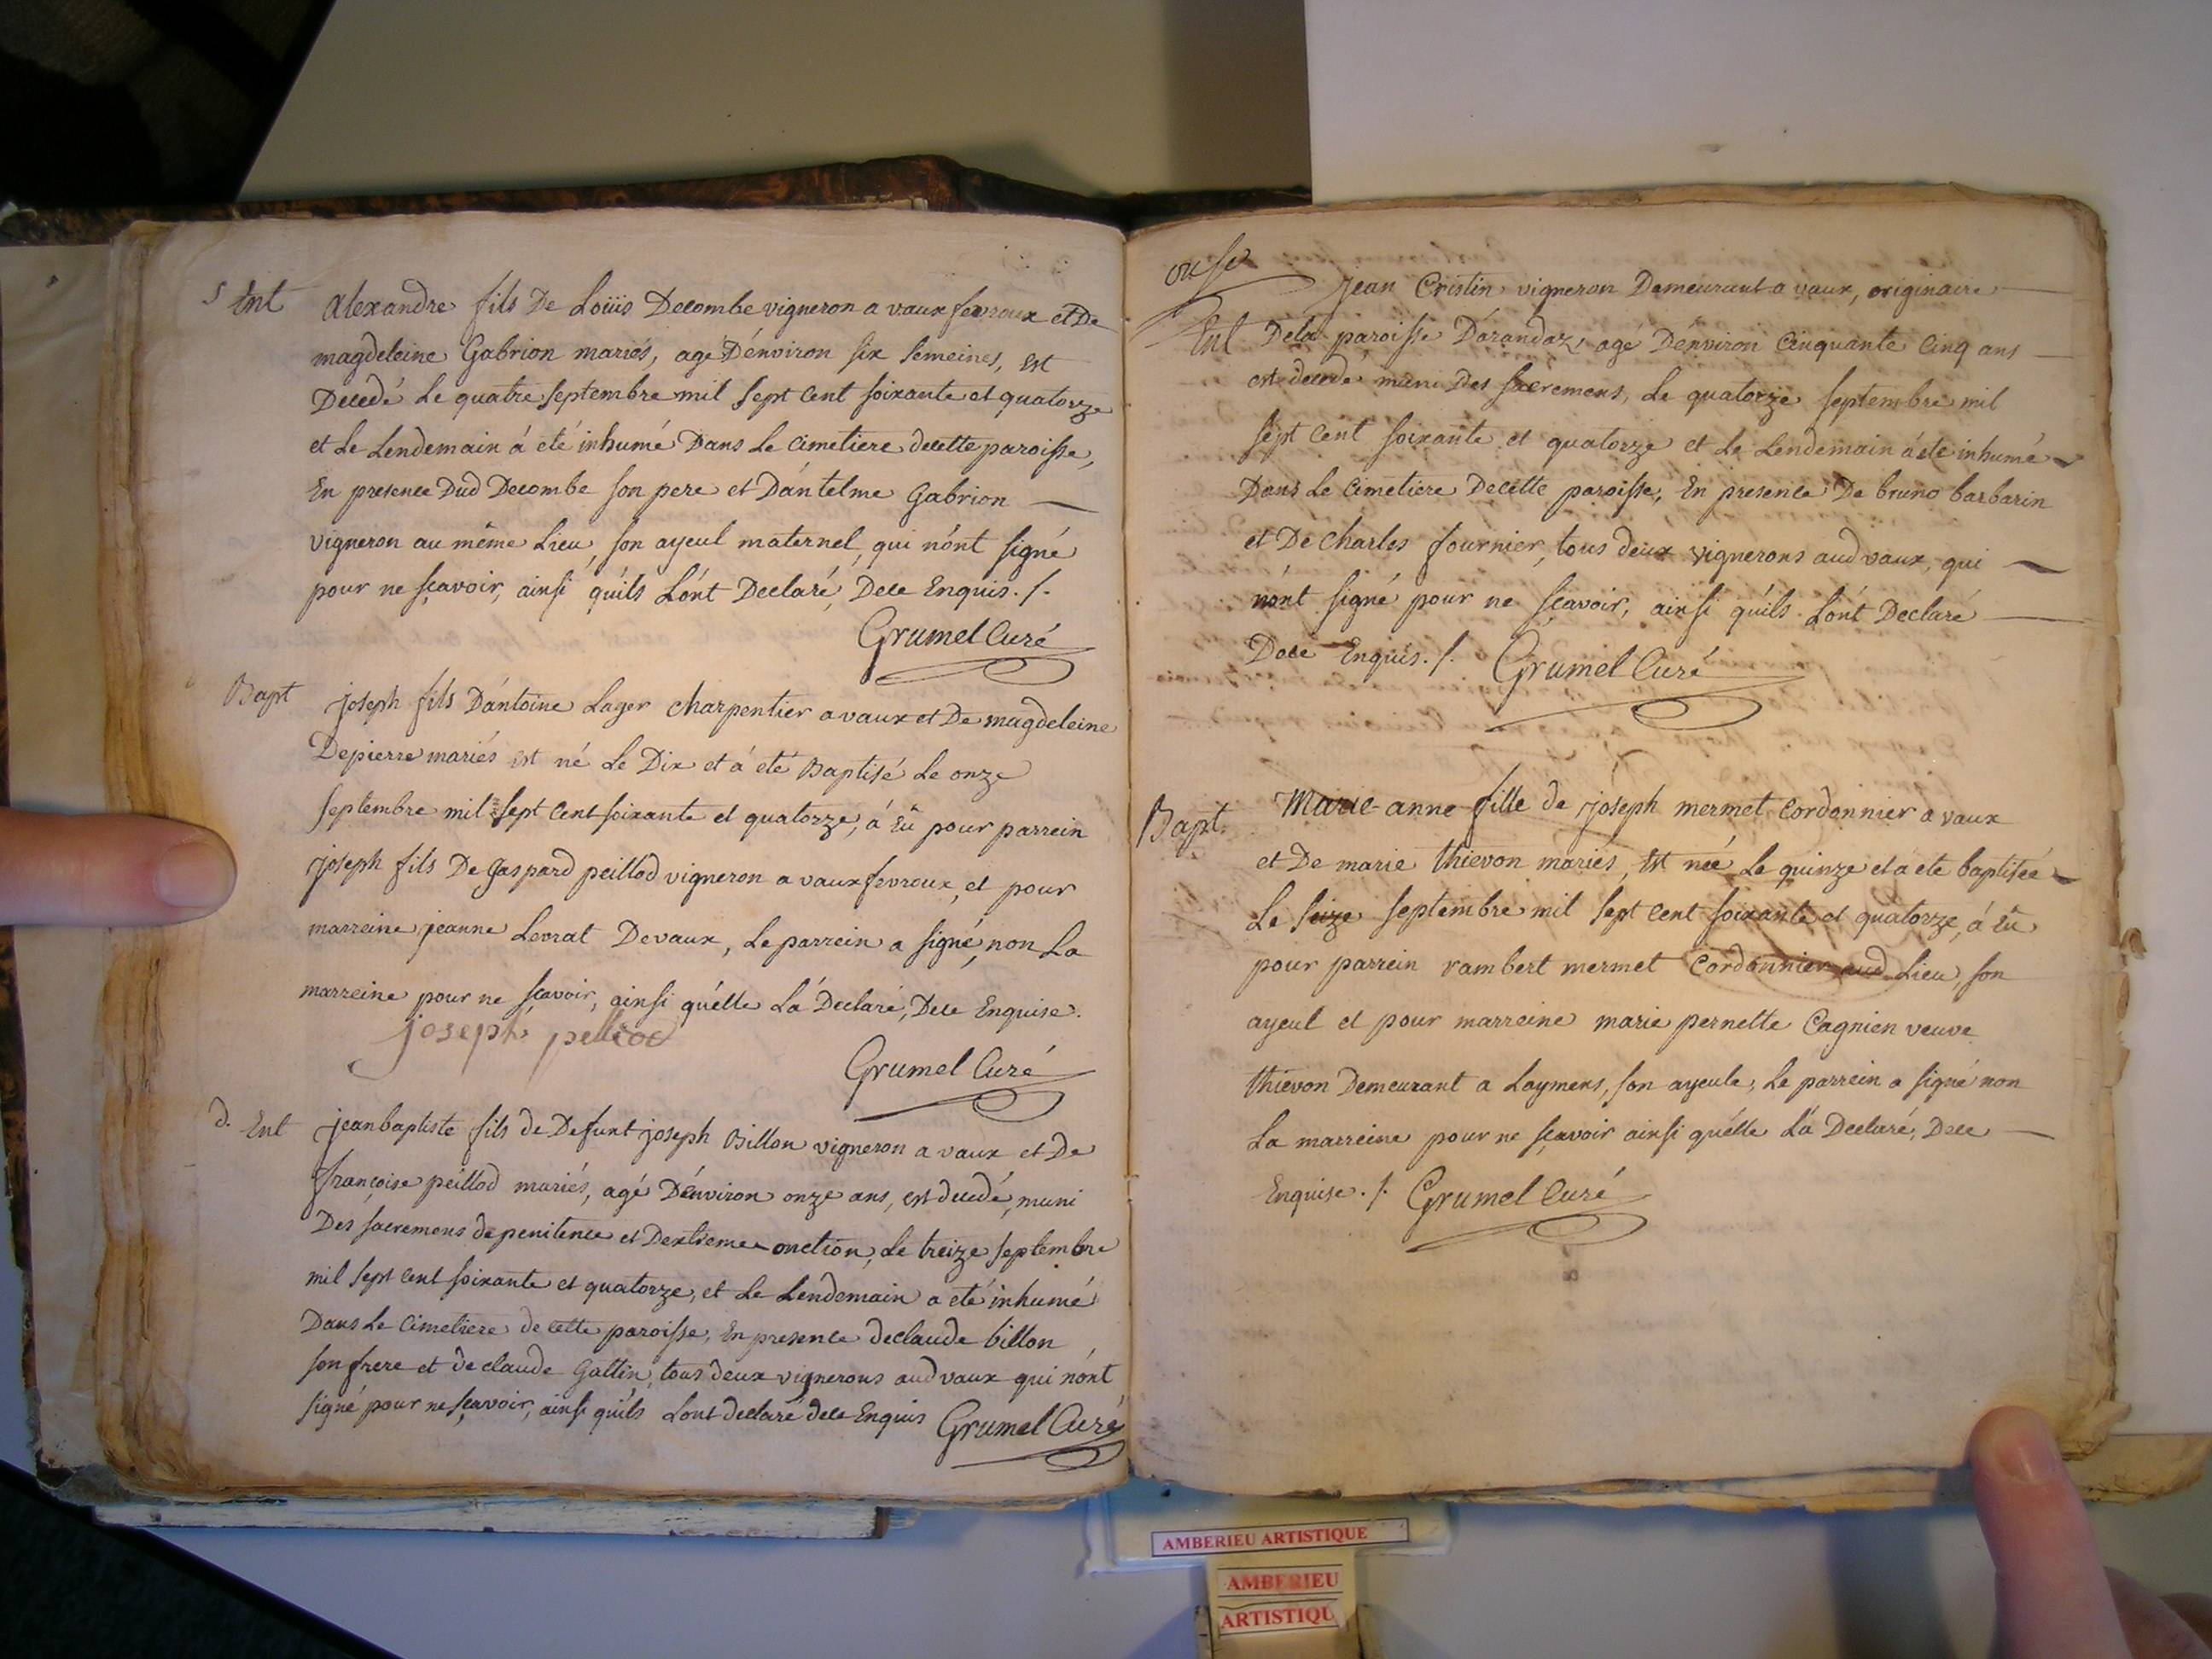 5 Ent Alexandre fils De Loüis Decombe vigneron a vaux fevroux et De
magdeleine Gabrion mariés, age D'énviron six semeines, est
Decedé Le quatre septembre mil sept cent soixante et quatorze
et Le Lendemain á eté inhumé Dans Le cimetiere decette paroisse,
En presence Dud Decombe son pere et D'ántelme Gabrion
vigneron au même Lieu, son ayeul maternel, qui n'ónt signé
pour ne sçavoir, ainsi qu'ils L'ónt Declaré, Dece Enquis ./.
Grumel Curé
Bapt joseph fils D'ántoine Lager charpentier a vaux et De magdeleine
Depierre mariés est né Le Dix et á eté Baptisé Le onze
septembre mil sept cent soixante et quatorze, á Eü pour parrein
joseph fils De gaspard peillod vigneron a vaux fevroux, et pour
marreine jeanne Levrat Devaux, Le parrein a signé, non La
marreine pour ne sçavoir, ainsi qu'élle L'á Declaré, Dece Enquise.
joseph pellod
Grumel Curé
d. Ent jeanbaptiste fils de Defunt joseph Billon vigneron a vaux et De
françoise peillod mariés, agé D'énviron onze ans, est decedé, muni
Des sacremens de penitence et Dextreme onction, Le treize septembre
mil sept cent soixante et quatorze, et Le Lendemain a eté inhumé
Dans Le Cimetiere de cette paroisse, En presence declaude billon
son frere et de claude Gallin, tous deux vignerons aud vaux qui n'ónt
signé pour ne sçavoir, ainsi qu'ils Lont declaré dece Enquis Grumel Curé
onse
jean Cristin vigneron Demeurant a vaux, originaire
Ent Dela paroisse D'árandaz, agé D'énviron Cinquante Cinq ans
est decedé muni Des sacremens, Le quatorze septembre mil
sept cent soixante et quatorze et Le Lendemain á eté inhumé
Dans Le Cimetiere Decette paroisse, En presence De bruno barbarin
et De charles fournier, tous deux vignerons aud vaux, qui
n'ónt signé pour ne sçavoir, ainsi qu'ils L'ónt Declaré
Dece Enquis ./. Grumel Curé
Bapt. Marie-anne fille de joseph mermet Cordonnier a vaux
et De marie thievon mariés, Est née Le quinze et a ete baptisée
Le seize septembre mil sept cent soixante et quatorze, á Eü
pour parrein rambert mermet Cordonnier aud Lieu, son
ayeul et pour marreine marie pernette Cagnien veuve
thievon Demeurant a Laymens, son ayeule, Le parrein a signé non
La marreine pour ne sçavoir ainsi qu'élle L'á Declaré, Dece
Enquise ./. Grumel Curé
AMBERIEU ARTISTIQUE
AMBERIEU
ARTISTIQU